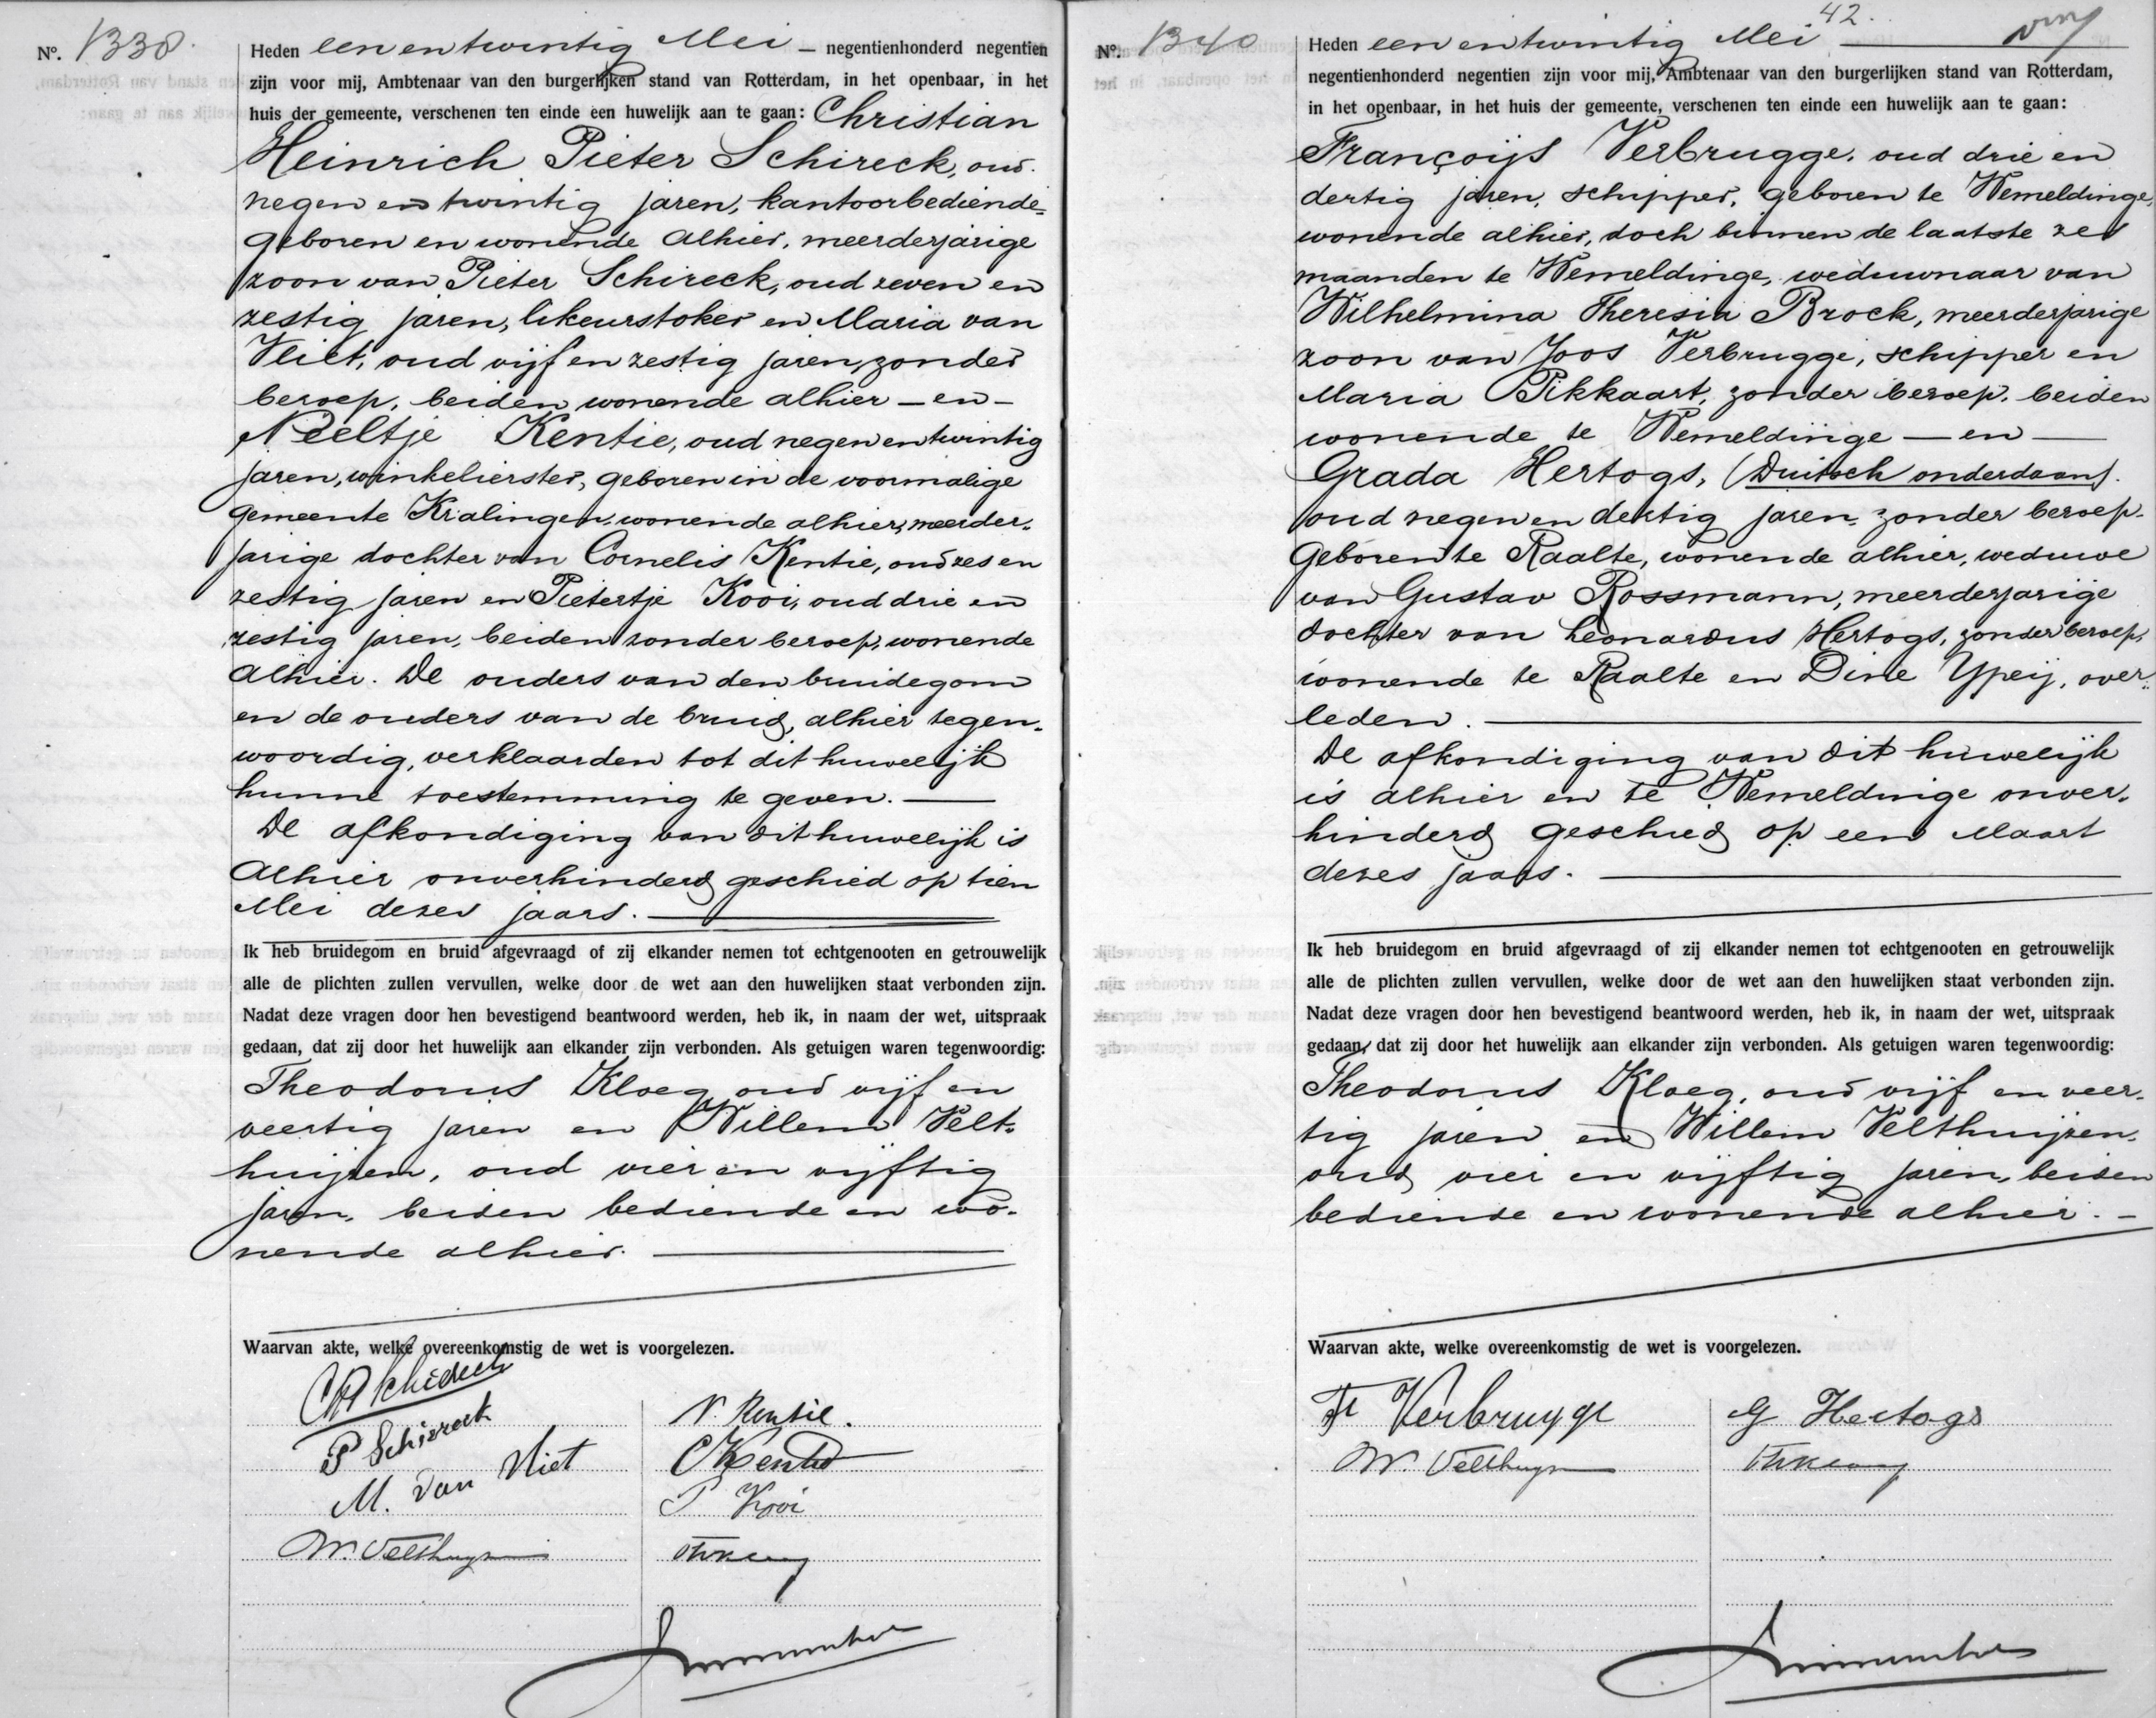 Nº. 1338.
Heden een en twintig Mei – negentienhonderd negentien
zijn voor mij, Ambtenaar van den burgerlijken stand van Rotterdam, in het openbaar, in het
huis der gemeente, verschenen ten einde een huwelijk aan te gaan: Christian
Heinrich Pieter Schireck, oud
negen en twintig jaren, kantoorbediende,
geboren en wonende alhier, meerderjarige
zoon van Pieter Schireck, oud zeven en
zestig jaren, likeurstoker en Maria van
Vliet, oud vijf en zestig jaren, zonder
beroep, beiden wonende alhier – en –
Neeltje Kentie, oud negen en twintig
jaren, winkelierster, geboren in de voormalige
gemeente Kralingen, wonende alhier, meerder-
jarige dochter van Cornelis Kentie, oud zes en
zestig jaren en Pietertje Kooi, oud drie en
zestig jaren, beiden zonder beroep, wonende
alhier. De ouders van den bruidegom
en de ouders van de bruid, alhier tegen-
woordig, verklaarden tot dit huwelijk
hunne toestemming te geven. —
De afkondiging van dit huwelijk is
alhier onverhinderd geschied op tien
Mei dezes jaars. —
Ik heb bruidegom en bruid afgevraagd of zij elkander nemen tot echtgenooten en getrouwelijk
alle de plichten zullen vervullen, welke door de wet aan den huwelijken staat verbonden zijn.
Nadat deze vragen door hen bevestigend beantwoord werden, heb ik, in naam der wet, uitspraak
gedaan, dat zij door het huwelijk aan elkander zijn verbonden. Als getuigen waren tegenwoordig:
Theodorus Kloeg, oud vijf en
veertig jaren en Willem Velt-
huijzen, oud vier en vijftig
jaren, beiden bediende en wo-
nende alhier. —
Waarvan akte, welke overeenkomstig de wet is voorgelezen.
CHP Schireck
N. Kentie.
P Schireck
C Kentie
M. van Vliet
P Kooi
W. Velthuyzen
Th Kloeg
Nº. 1340
42.
Heden een en twintig Mei —
negentienhonderd negentien zijn voor mij, Ambtenaar van den burgerlijken stand van Rotterdam,
in het openbaar, in het huis der gemeente, verschenen ten einde een huwelijk aan te gaan:
Françoijs Verbrugge, oud drie en
dertig jaren, schipper, geboren te Wemeldinge,
wonende alhier, doch binnen de laatste zes
maanden te Wemeldinge, weduwnaar van
Wilhelmina Theresia Brock, meerderjarige
zoon van Joos Verbrugge, schipper en
Maria Pikkaart, zonder beroep, beiden
wonende te Wemeldinge — en —
Grada Hertogs, (Duitsch onderdaan).
oud negen en dertig jaren, zonder beroep,
geboren te Raalte, wonende alhier, weduwe
van Gustav Rossmann, meerderjarige
dochter van Leonardus Hertogs, zonder beroep,
wonende te Raalte en Dine Ypeij, over-
leden. —
De afkondiging van dit huwelijk
is alhier en te Wemeldinge onver-
hinderd geschied op een Maart
dezes jaars. —
Ik heb bruidegom en bruid afgevraagd of zij elkander nemen tot echtgenooten en getrouwelijk
alle de plichten zullen vervullen, welke door de wet aan den huwelijken staat verbonden zijn.
Nadat deze vragen door hen bevestigend beantwoord werden, heb ik, in naam der wet, uitspraak
gedaan, dat zij door het huwelijk aan elkander zijn verbonden. Als getuigen waren tegenwoordig:
Theodorus Kloeg, oud vijf en veer-
tig jaren en Willem Velthuijzen,
oud vier en vijftig jaren, beiden
bediende en wonende alhier. –
Waarvan akte, welke overeenkomstig de wet is voorgelezen.
Fr Verbrugge
G Hertogs
W. Velthuyzen
Th Kloeg